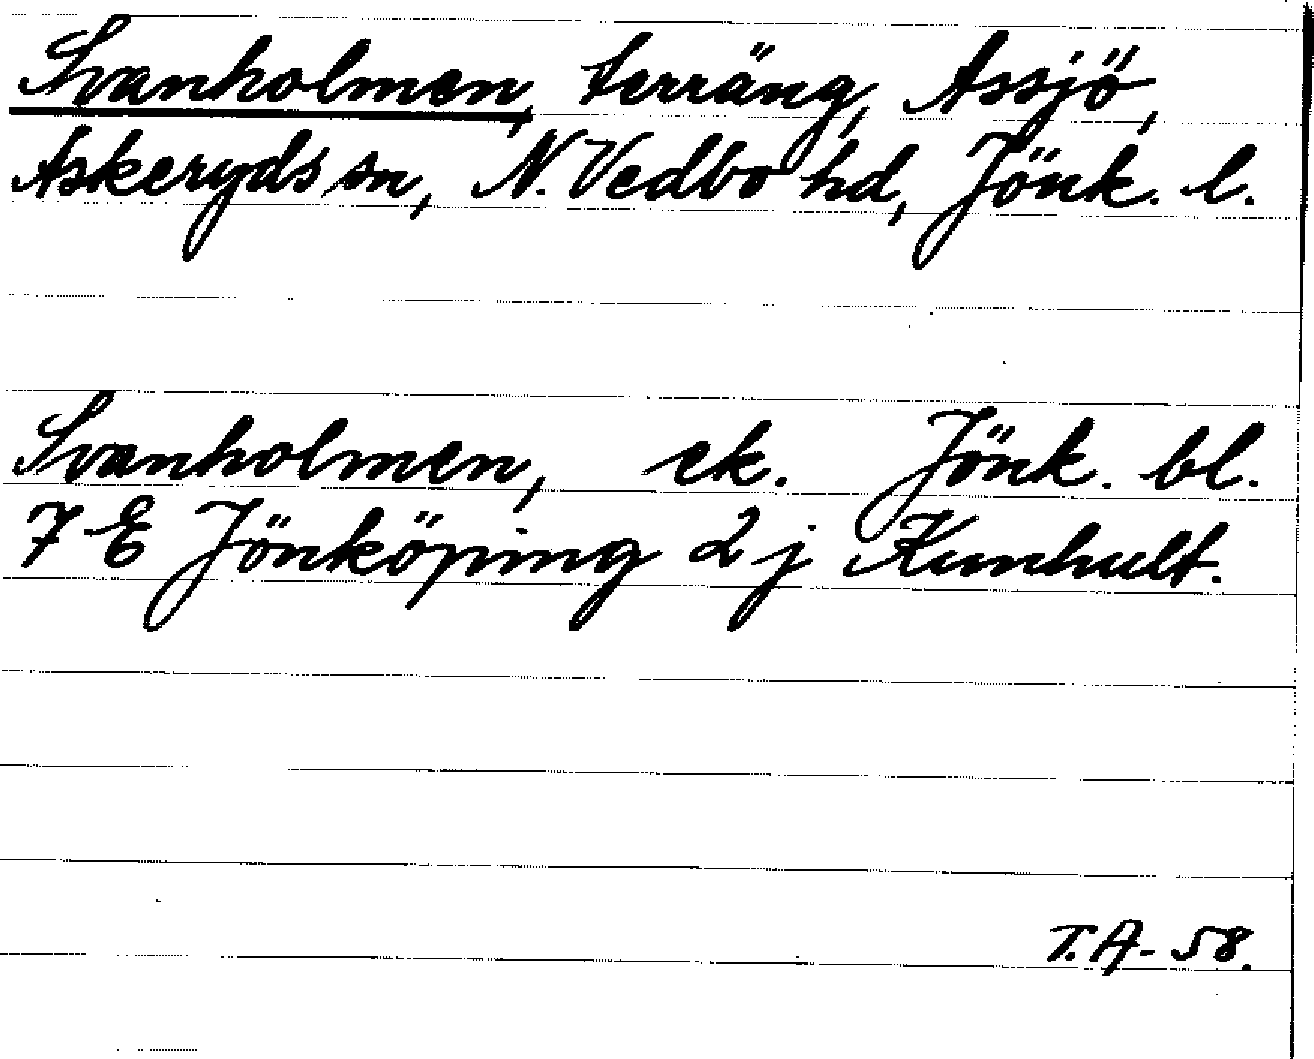 Svanholmen, terräng, Assjö,
Askeryds sn, N. Vedbo hd, Jönk. l.
Svanholmen, ek. Jönk. bl.
7 E Jönköping 2 j Kunhult.
T.A-58.